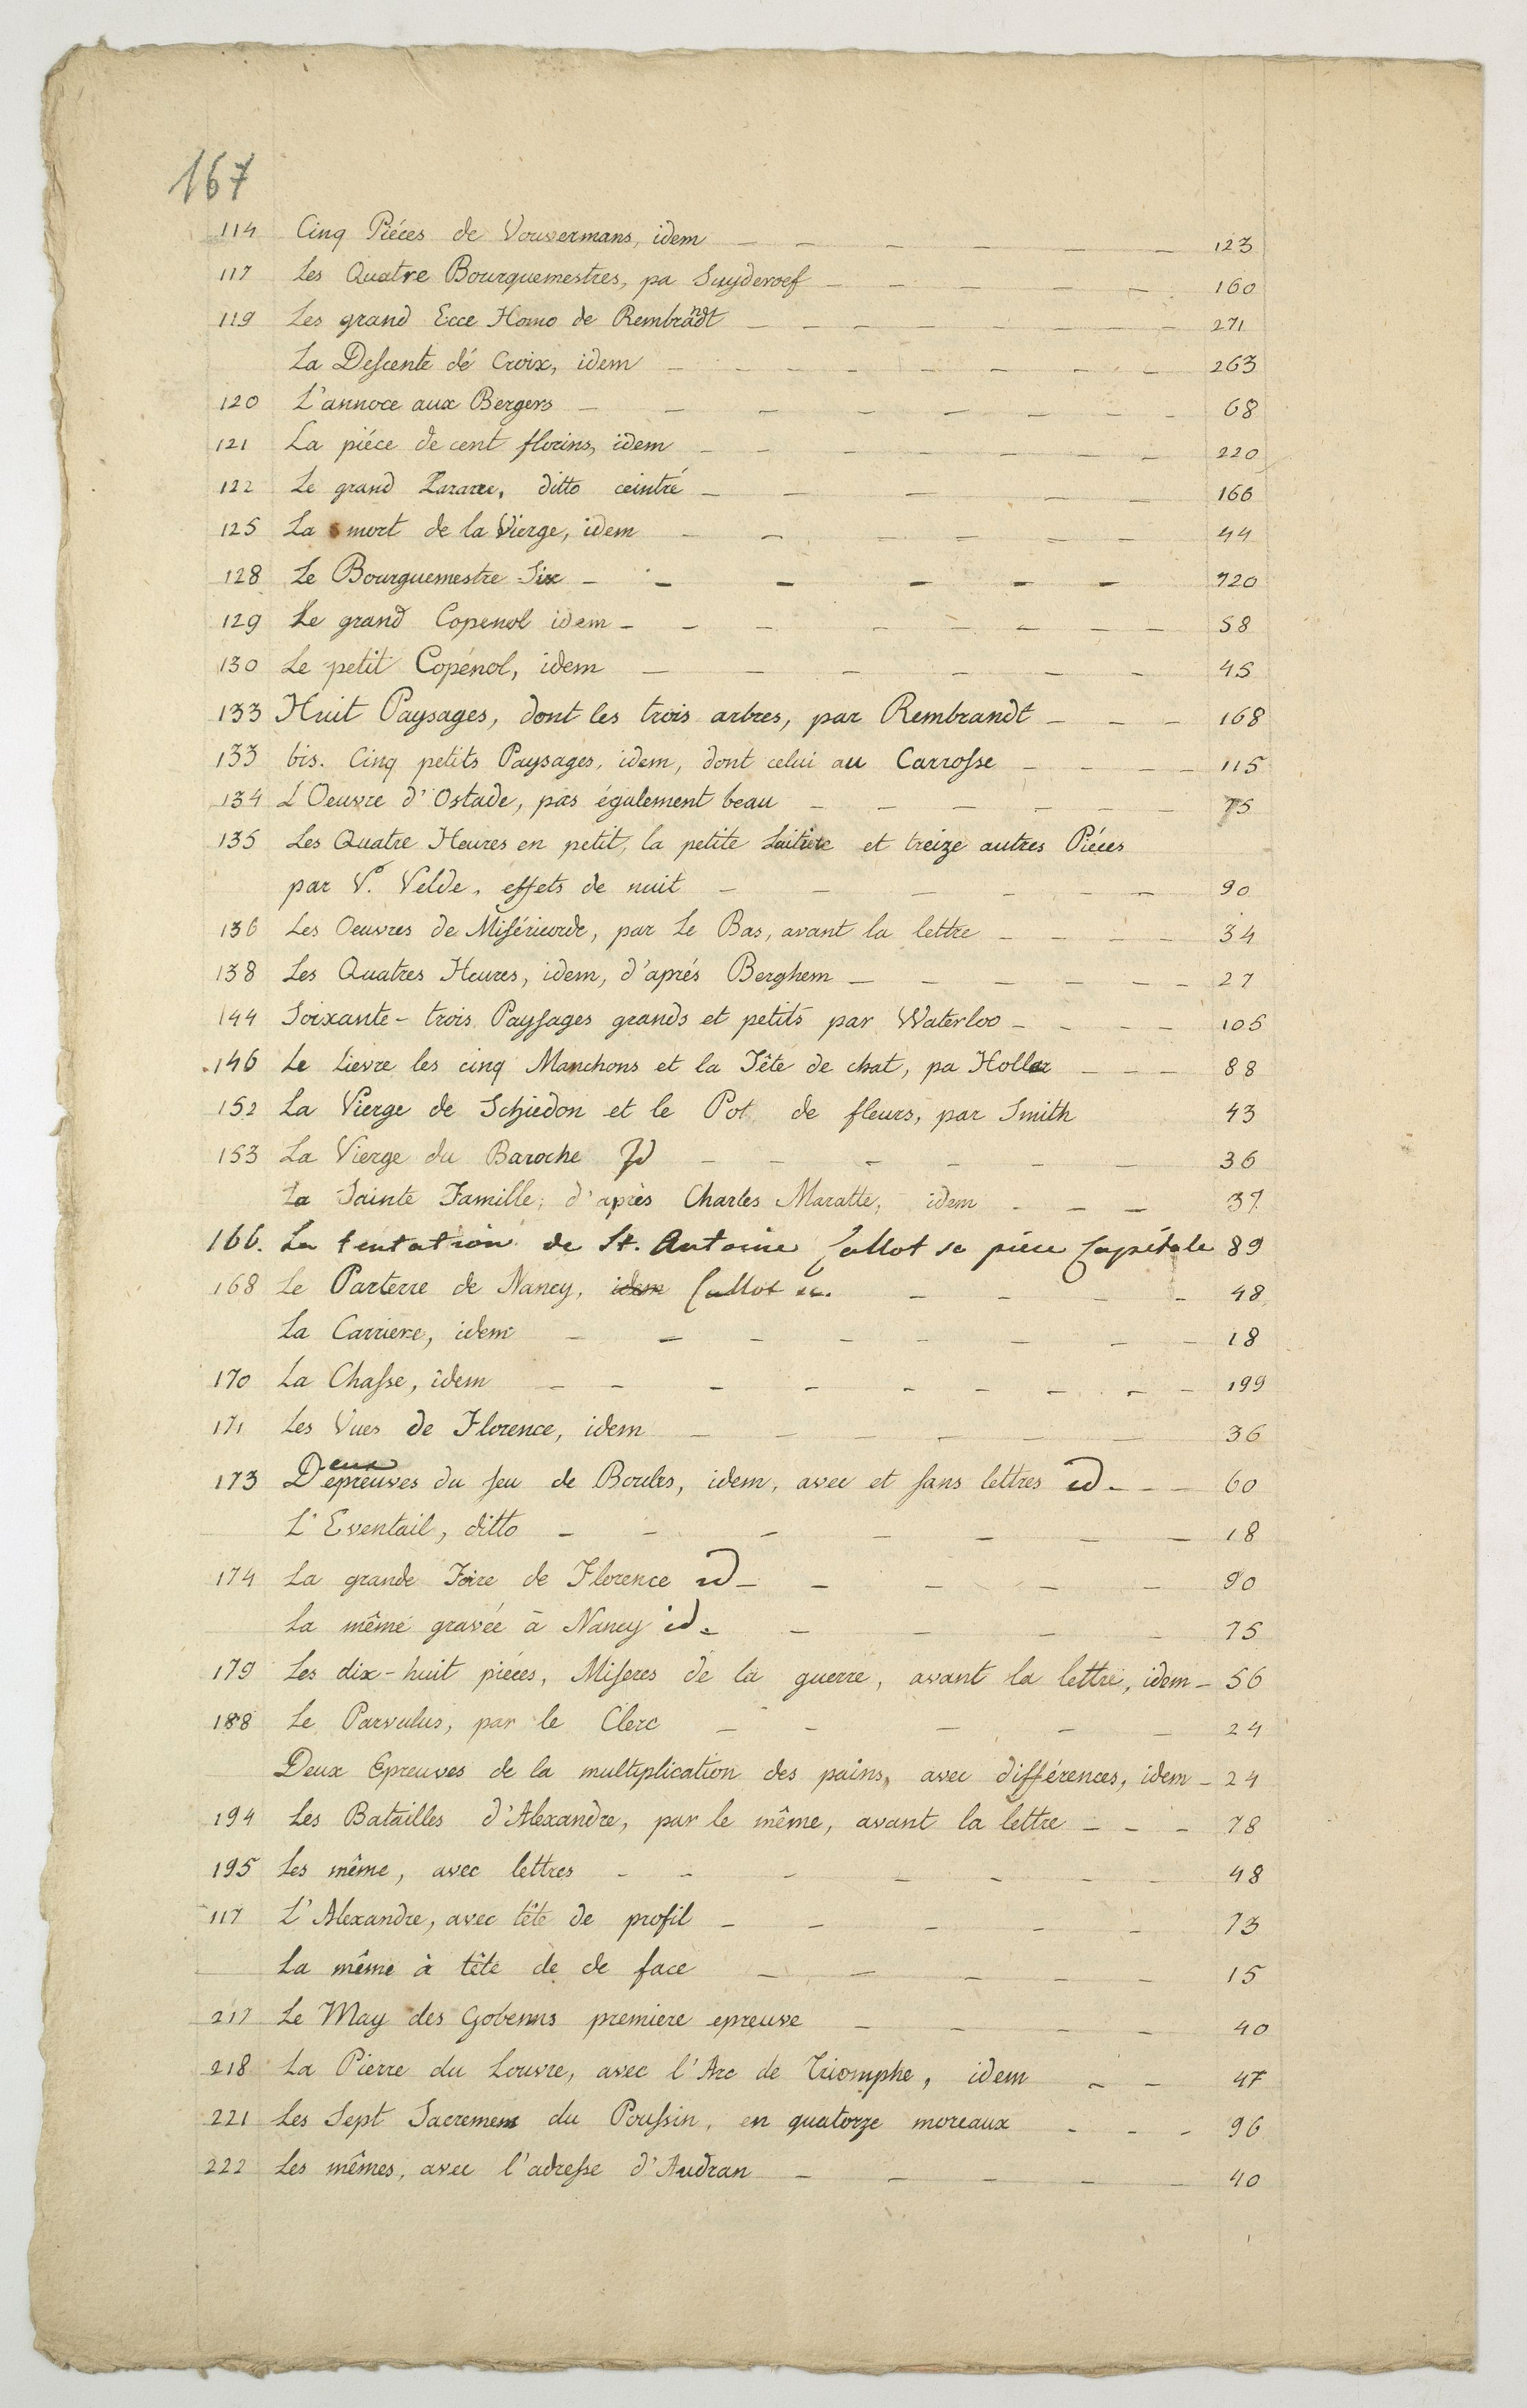 167
114 Cinq Piéces de Vouvermans, idem - - - - - - 123
117 Les Quatre Bourguemestres, pa Suyderoef - - - - - 160
119 Les grand Ecce Homo de Rembrandt - - - - - - - - - 271
La Descente dé Croix, idem - - - - - - - - 263
120 L'annoce aux Bergers - - - - - - - - 68
121 La piéce de cent florins, idem - - - - - - - 220
122 Le grand Lazarre, ditto ceintré - - - - - 166
125 La mort de la Vierge, idem - - - - - - 44
128 Le Bourguemestre Six - - - - - - 720
129 Le grand Copenol idem - - - - - - - - 58
130 Le petit Copénol, idem - - - - - - 45
133 Huit Paysages, dont les trois arbres, par Rembrandt - - - 168
133 bis. Cinq petits Paysages, idem, dont celui au Carrosse - - - - 115
134 L'Oeuvre d'Ostade, pas également beau - - - - - - 75
135 Les Quatre Heures en petit, la petite Laitiere et treize autres Piéces
par V. Velde, effets de nuit - - - - - - 90
136 Les Oeuvres de Miséricorde, par Le Bas, avant la lettre - - - - 34
138 Les Quatres Heures, idem, d'aprés Berghem - - - - - - 27
144 Soixante-trois Paysages grands et petits par Waterloo - - - - 105
146 Le Lievre les cinq Manchons et la Tête de chat, pa Hollar - - - 88
152 La Vierge de Schiedon et le Pot de fleurs, par Smith 43
153 La Vierge du Baroche Id - - - - - - 36
La Sainte Famille, d'après Charles Maratte, idem - - - 37
166. La tentation de St. Antoine Callot sa piéce Capitale 89
168 Le Parterre de Nancy, idem Callot - - - - 48
La Carriere, idem - - - - - - - - 18
170 La Chasse, idem - - - - - - - - - 199
171 Les Vues de Florence, idem - - - - - - 36
173 Deux epreuves du jeu de Boules, idem, avec et sans lettres id - - - 60
L'Eventail, ditto - - - - - - - 18
174 La grande Foire de Florence id - - - - - 90
La même gravée à Nancy id. - - - - 75
179 Les dix-huit piéces, Miseres de la guerre, avant la lettre, idem - 56
188 Le Parvulus, par le Clerc - - - - - 24
Deux Epreuves de la multiplication des pains, avec différences, idem - 24
194 Les Batailles d'Alexandre, par le même, avant la lettre - - - 78
195 Les même, avec lettres - - - - - - - 48
117 L'Alexandre, avec tête de profil - - - - - 73
La même à tête de de face - - - - - 15
217 Le May des Gobenns premiere epreuve - - - - 40
218 La Pierre du Louvre, avec l'Arc de Triomphe, idem - - 47
221 Les Sept Sacremens du Poussin, en quatorze moreaux - - - 96
222 Les mêmes, avec l'adresse d'Audran - - - - - 40